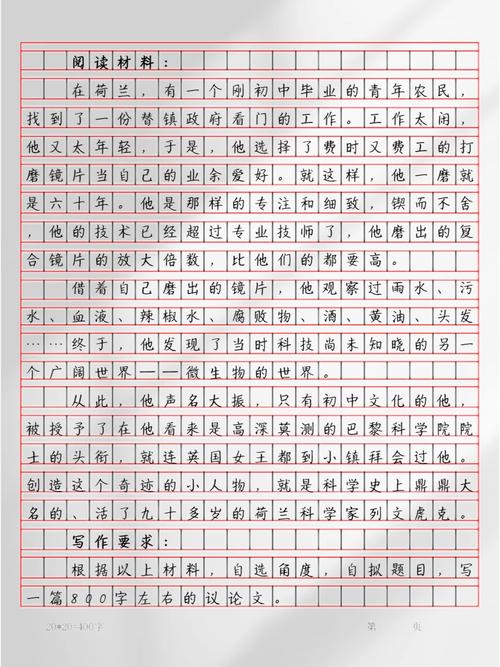 阅读材料:
在荷兰,有一个刚初中毕业的青年农民,
找到了一份替镇政府看门的工作。工作太闲,
他又太年轻,于是,他选择了费时又费工的打
磨镜片当自己的业余爱好。就这样,他一磨就
是六十年。他是那样的专注和细致,锲而不舍
,他的技术已经超过专业技师了,他磨出的复
合镜片的放大倍数,比他们的都要高。
借着自己磨出的镜片,他观察过雨水、污
水、血液、辣椒水、腐败物、酒、黄油、头发
……终于,他发现了当时科技尚未知晓的另一
个广阔世界——微生物的世界。
从此,他声名大振,只有初中文化的他,
被授予了在他看来是高深莫测的巴黎科学院院
士的头衔,就连英国女王都到小镇拜会过他。
创造这个奇迹的小人物,就是科学史上鼎鼎大
名的、活了九十多岁的荷兰科学家列文虎克。
写作要求:
根据以上材料,自选角度,自拟题目,写
一篇800字左右的议论文。
20*20=400字 第 页